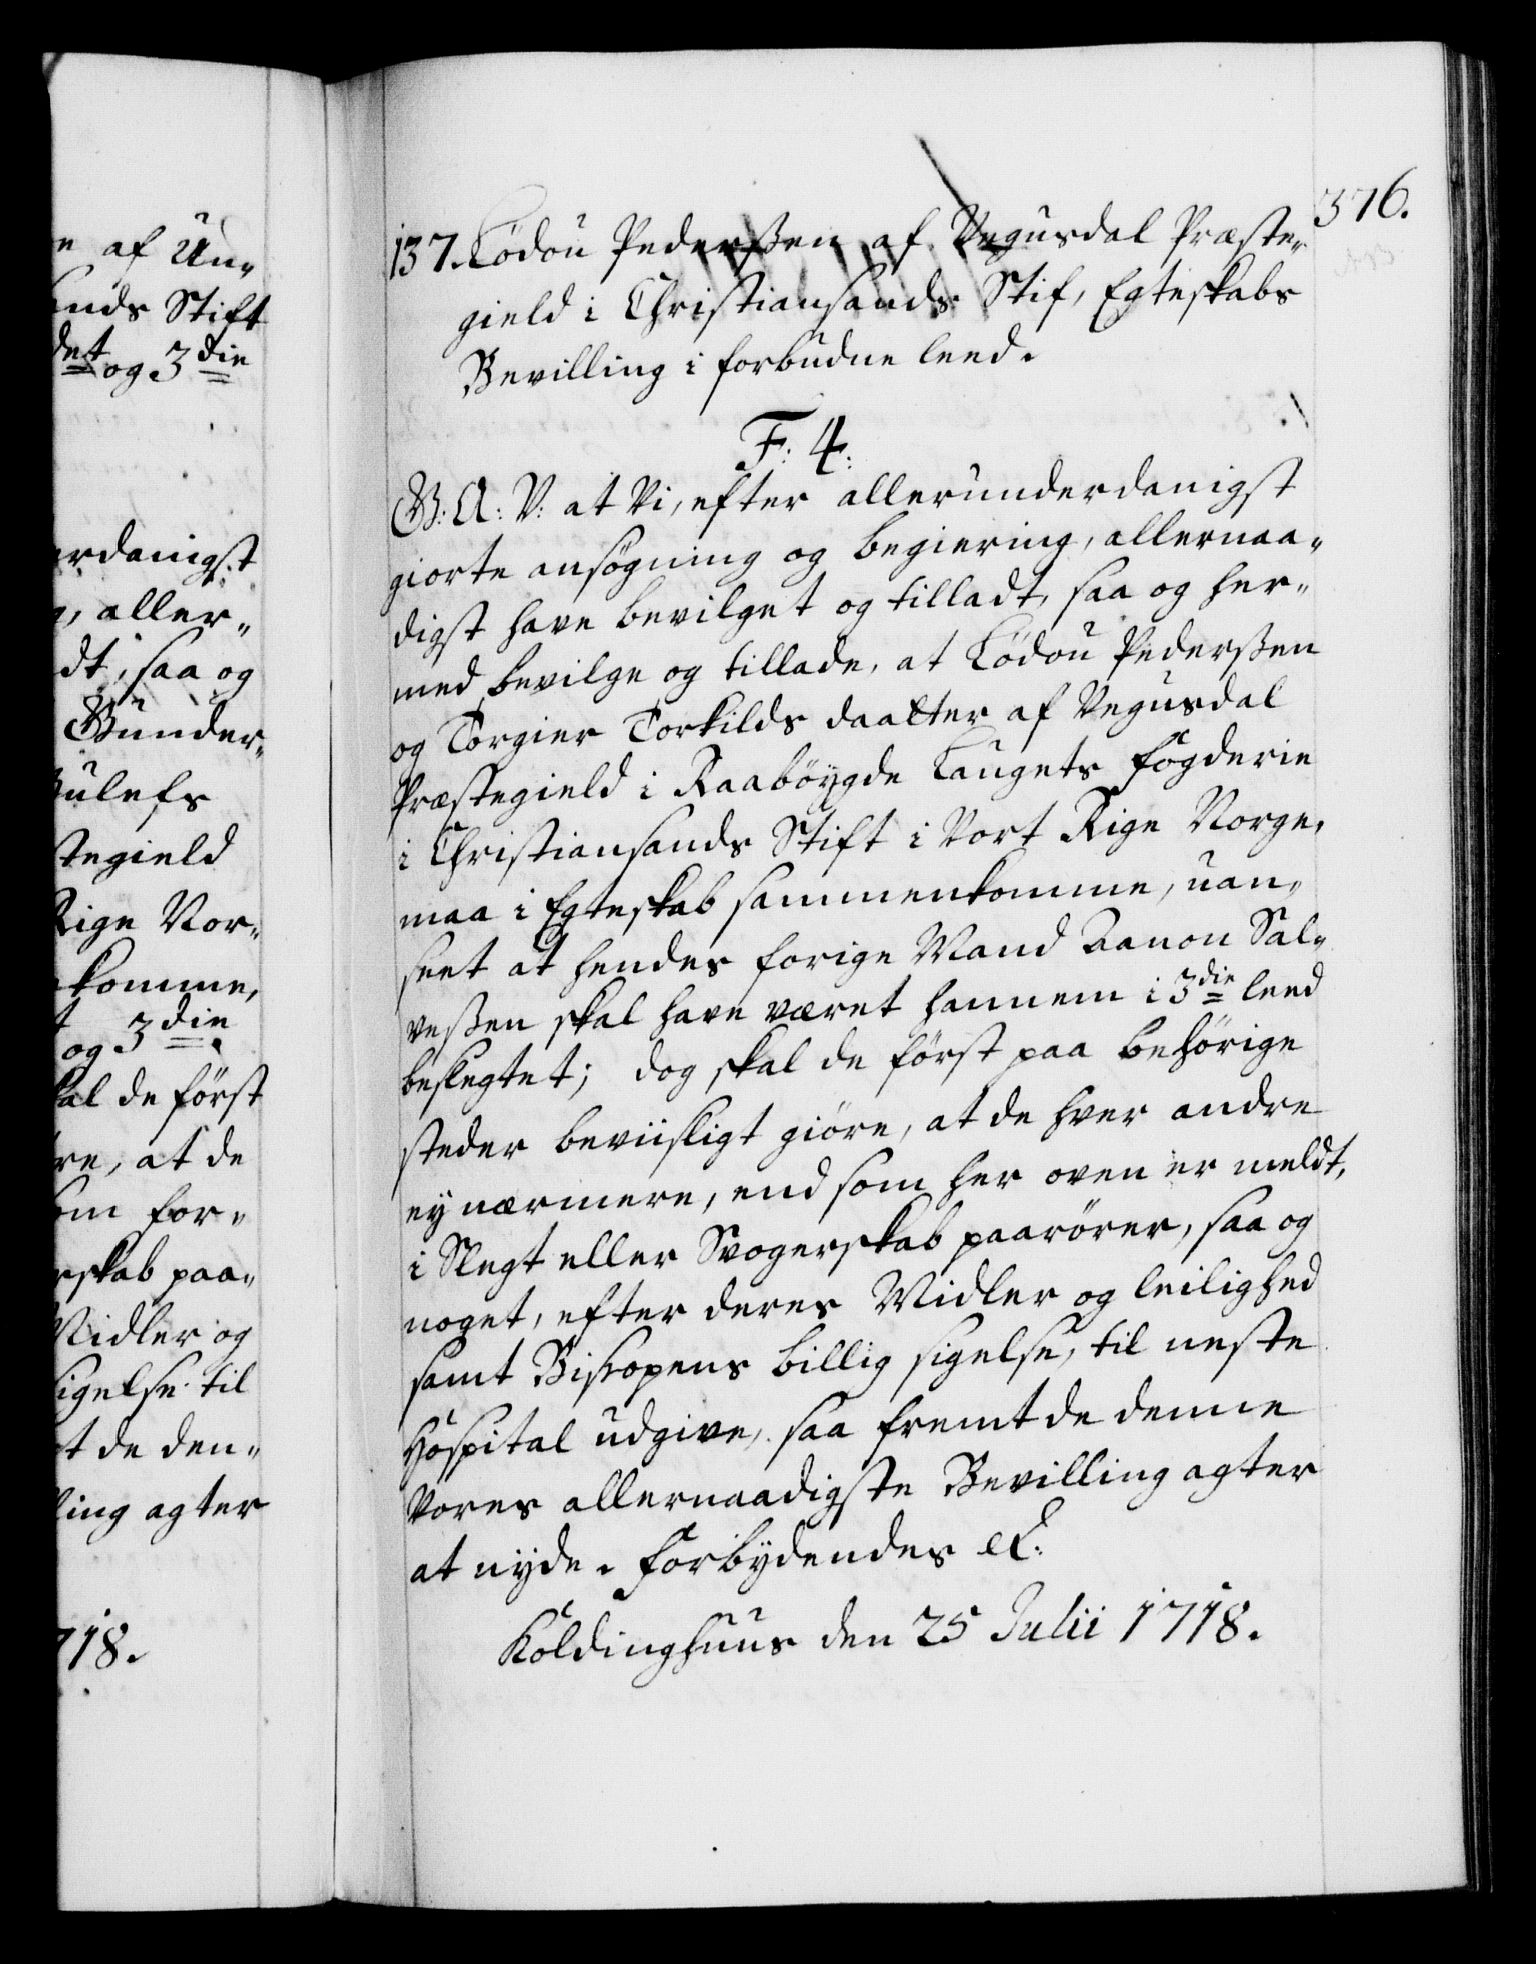 n af Un-
ands Stift
det og 3die
erdanigst
g, aller-
dt, saa og
Gunder-
ulefs
stegield
Rige Nor-
komme,
t og 3die
kal de först
re, at de
om for-
rskab paa-
Midler og
sigelse til
t de den-
ling agter
718.
376.
137. Lödou Pederßen af Vegusdal Præste-
gield i Christiansands Stif, Egteskabs
Bevilling i forbudne leed.
F: 4:
G: A: V: at Vi, efter allerunderdanigst
giorte ansögning og begiering, allernaa-
digst have bevilget og tilladt, saa og her-
med bevilge og tillade, at Lödou Pederßen
og Torgier Torkilds daatter af Vegusdal
Præstegield i Raabøygde Laugets fogderie
i Christiansands Stift i Vort Rige Norge,
maa i Egteskab sammenkomme, uan-
seet at hendes forige Mand Aanon Sal-
veßen skal have været hannem i 3die leed
beslegtet; dog skal de först paa behörige
steder beviisligt giöre, at de hver andre
ey nærmere, end som her oven er meldt,
i Slegt eller Svogerskab paarörer, saa og
noget, efter deres Midler og leilighed
samt Biskopens billig sigelse, til neste
Hospital udgive, saa fremt de denne
Vores allernaadigste Bevilling agter
at nyde. Forbydendes etc:
Koldinghuus den 25 Julii 1718.